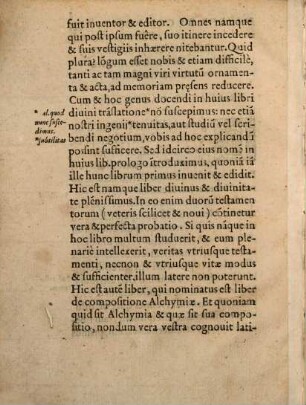 fuit inuentor & editor. Omnes namque
qui post ipsum fuêre, suo itinere incedere
& suis vestigiis inhærere nitebantur. Quid
plura? lõgum esset nobis & etiam difficilè,
tanti ac tam magni viri virtutũ ornamen
ta & acta, ad memoriam pręsens reducere.
Cum & hoc genus docendi in huius libri
diuini trãslatione *nõ suscepimus: nec etiã
nostri ingenii *tenuitas, aut studiũ vel scri
bendi negotium, vobis ad hoc explicandũ
posint sufficere. Sed idcirco eius nomẽ in
huius lib. prologo ĩtroduximus, quoniã iã
ille hunc librum primus inuenit & edidit.
Hic est namque liber diuinus & diuinita-
te plenissimus. In eo enim duorũ testamen
torum (veteris scilicet & noui) cõtinetur
vera & perfecta probatio. Si quis náque in
hoc libro multum studuerit, & eum ple-
nariè intellexerit, veritas vtriusque testa-
menti, necnon & vtriusque vitæ modus
& sufficienter, illum latere non poterunt.
Hic est autẽ liber, qui nominatus est liber
de compositione Alchymiæ. Et quoniam
quid sit Alchymia & quæ sit sua compo-
sitio, nondum vera vestra cognouit lati-
* al. quod
nunc susce-
dimus.
* subtilitas